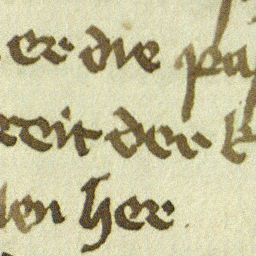 er die pa
reit der k
len her